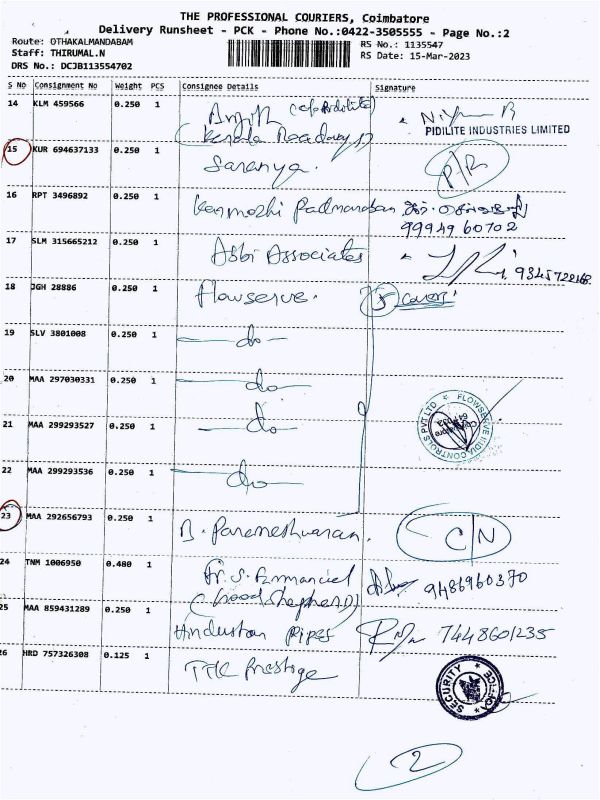 THE PROFESSIONAL COURIERS, Coimbatore
Delivery Runsheet - PCK - Phone No.:0422-3505555 - Page No.:2
Route: OTHAKALMANDABAM
RS No.: 1135547
Staff: THIRUMAL.N
RS Date: 15-Mar-2023
DRS No.: DCJB113554702
S No Consignment No Weight PCS Consignee Details Signature
14 KLM 459566 0.250 1
Kerala Roadways
PIDILITE INDUSTRIES LIMITED
15 KUR 694637133 0.250 1 Saranya. P/R
16 RPT 3496892 0.250 1 Kanmozhi Padmanaban
99949 60702
17 SLM 315665212 0.250 1 Asbi Associates
18 JGH 28886 0.250 1 Flowserve. 5 Covers
19 SLV 3801008 0.250 1 do
20 MAA 297030331 0.250 1 do
21 MAA 299293527 0.250 1 do
FLOWSERVE INDIA CONTROLS PVT LTD
22 MAA 299293536 0.250 1 do
23 MAA 292656793 0.250 1 B. Parameshwaran. C/N
24 TNM 1006950 0.480 1 Fr. S. Emmanuel 9486960370
(Good Shepherd)
25 MAA 859431289 0.250 1 Hindustan Pipes 7448601235
26 HRD 757326308 0.125 1 TTK Prestige
SECURITY OFFICE
2